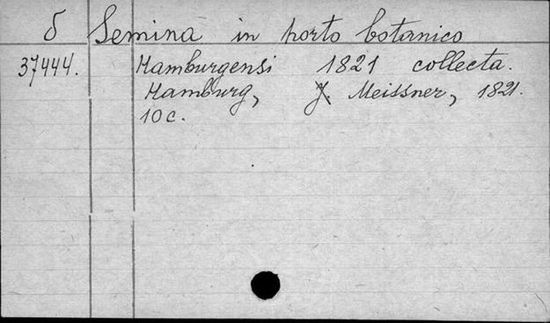 δ Semina in horto botanico
37444. Hamburgensi 1821 collecta.
Hamburg, J. Meissner, 1821.
10 c.